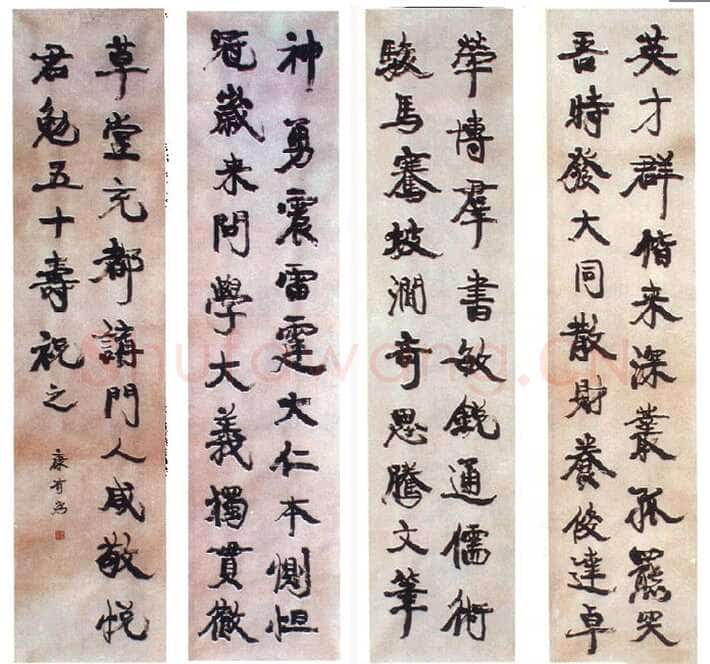 英才群偕来深叢孤羆突
吾時發大同散財養俊達卓
犖博羣書敏鋭通儒術
駿馬騫坡澗奇思騰文筆
神勇震雷霆大仁本惻怛
冠歲来問學大義獨貫徹
草堂充都講門人咸敬悦
君勉五十壽祝之
康有為
Shufawang.CN